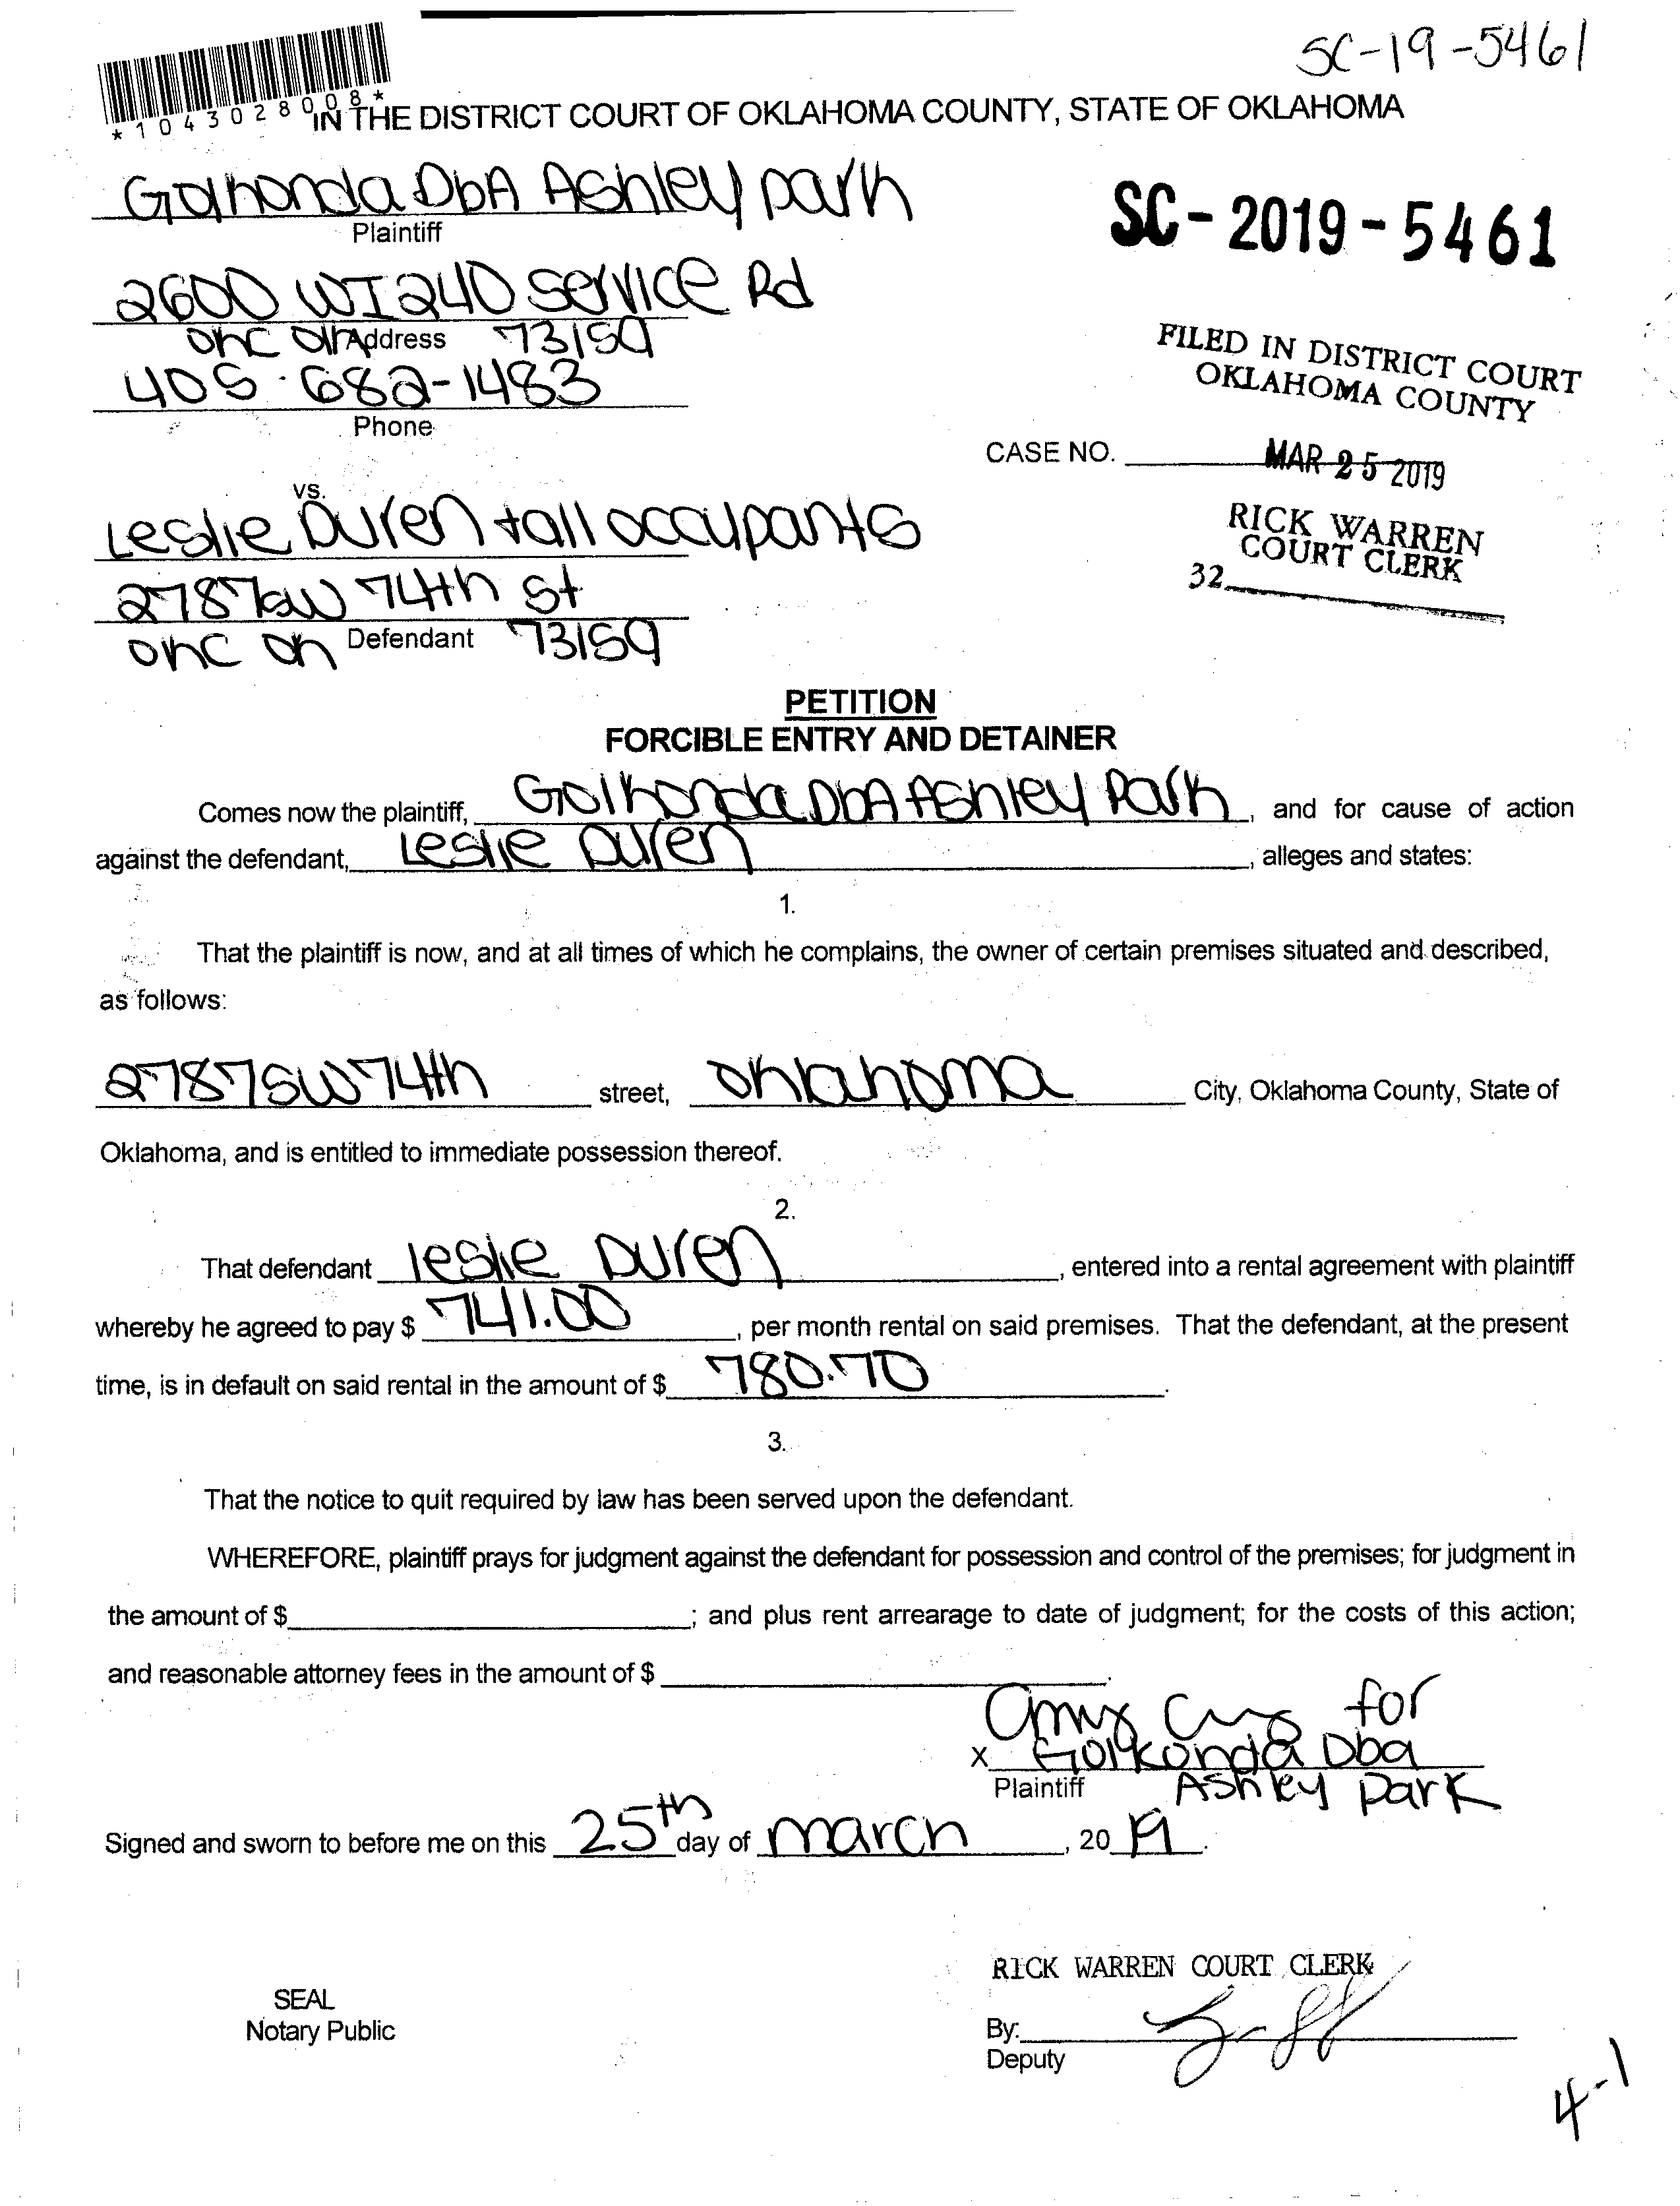 SC-19-5461
*1043028008*
IN THE DISTRICT COURT OF OKLAHOMA COUNTY, STATE OF OKLAHOMA
Golkonda DbA Ashley park
Plaintiff
SC-2019-5461
2600 WI240 Service Rd
Address
OKC OK 73159
405-682-1483
Phone
FILED IN DISTRICT COURT
OKLAHOMA COUNTY
CASE NO.
MAR 25 2019
RICK WARREN
COURT CLERK
32
vs.
Leslie Duren + all occupants
2787 SW 74th St
Defendant
OKC OK 73159
PETITION
FORCIBLE ENTRY AND DETAINER
Comes now the plaintiff, Golkonda DbA Ashley Park, and for cause of action
against the defendant, Leslie Duren, alleges and states:
1.
That the plaintiff is now, and at all times of which he complains, the owner of certain premises situated and described,
as follows:
2787 SW 74th street, Oklahoma City, Oklahoma County, State of
Oklahoma, and is entitled to immediate possession thereof.
2.
That defendant leslie Duren, entered into a rental agreement with plaintiff
whereby he agreed to pay $ 741.00, per month rental on said premises. That the defendant, at the present
time, is in default on said rental in the amount of $ 780.70.
3.
That the notice to quit required by law has been served upon the defendant.
WHEREFORE, plaintiff prays for judgment against the defendant for possession and control of the premises; for judgment in
the amount of $ ; and plus rent arrearage to date of judgment; for the costs of this action;
and reasonable attorney fees in the amount of $ .
Amy for
x Golkonda Dba
Plaintiff Ashley Park
Signed and sworn to before me on this 25th day of march, 20 19.
RICK WARREN COURT CLERK
SEAL
Notary Public
By:
Deputy
4-1